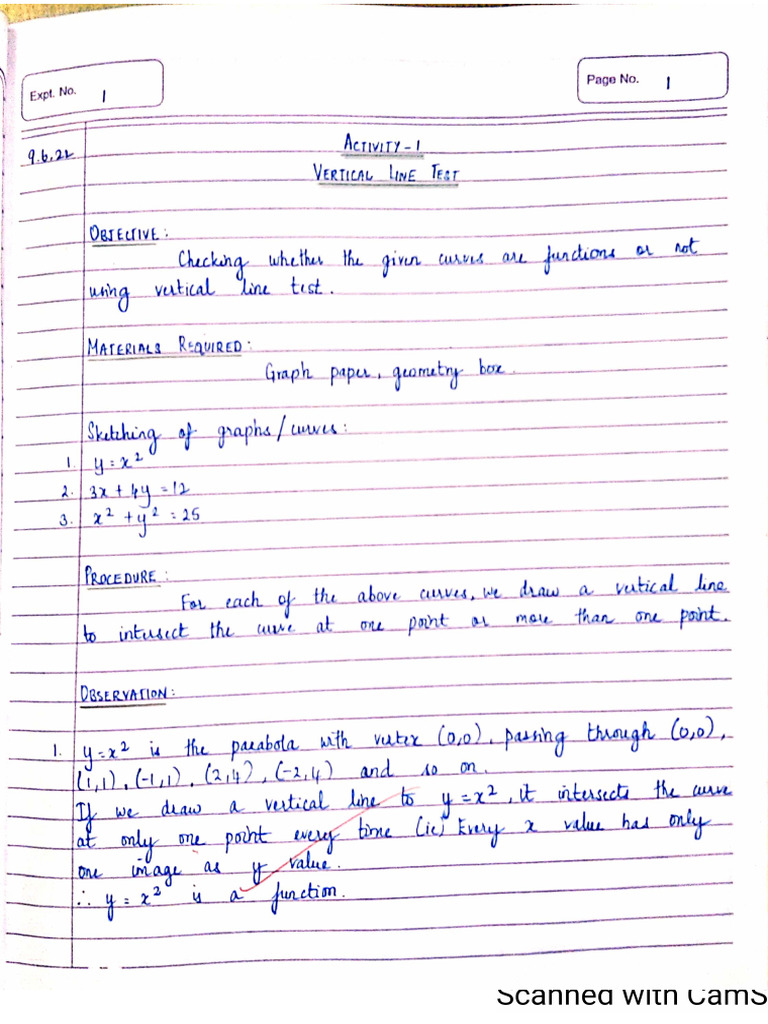 Expt. No. 1
Page No. 1
9.6.22
ACTIVITY-1
VERTICAL LINE TEST
OBJECTIVE:
Checking whether the given curves are functions or not
using vertical line test.
MATERIALS REQUIRED:
Graph paper, geometry box.
Sketching of graphs/curves:
1. y = x²
2. 3x + 4y = 12
3. x² + y² = 25
PROCEDURE:
For each of the above curves, we draw a vertical line
to intersect the curve at one point or more than one point.
OBSERVATION:
1. y=x² is the parabola with vertex (0,0), passing through (0,0),
(1,1), (-1,1), (2,4), (-2,4) and so on.
If we draw a vertical line to y=x², it intersects the curve
at only one point every time (ie) Every x value has only
one image as y value.
∴ y = x² is a function.
Scanned with CamS